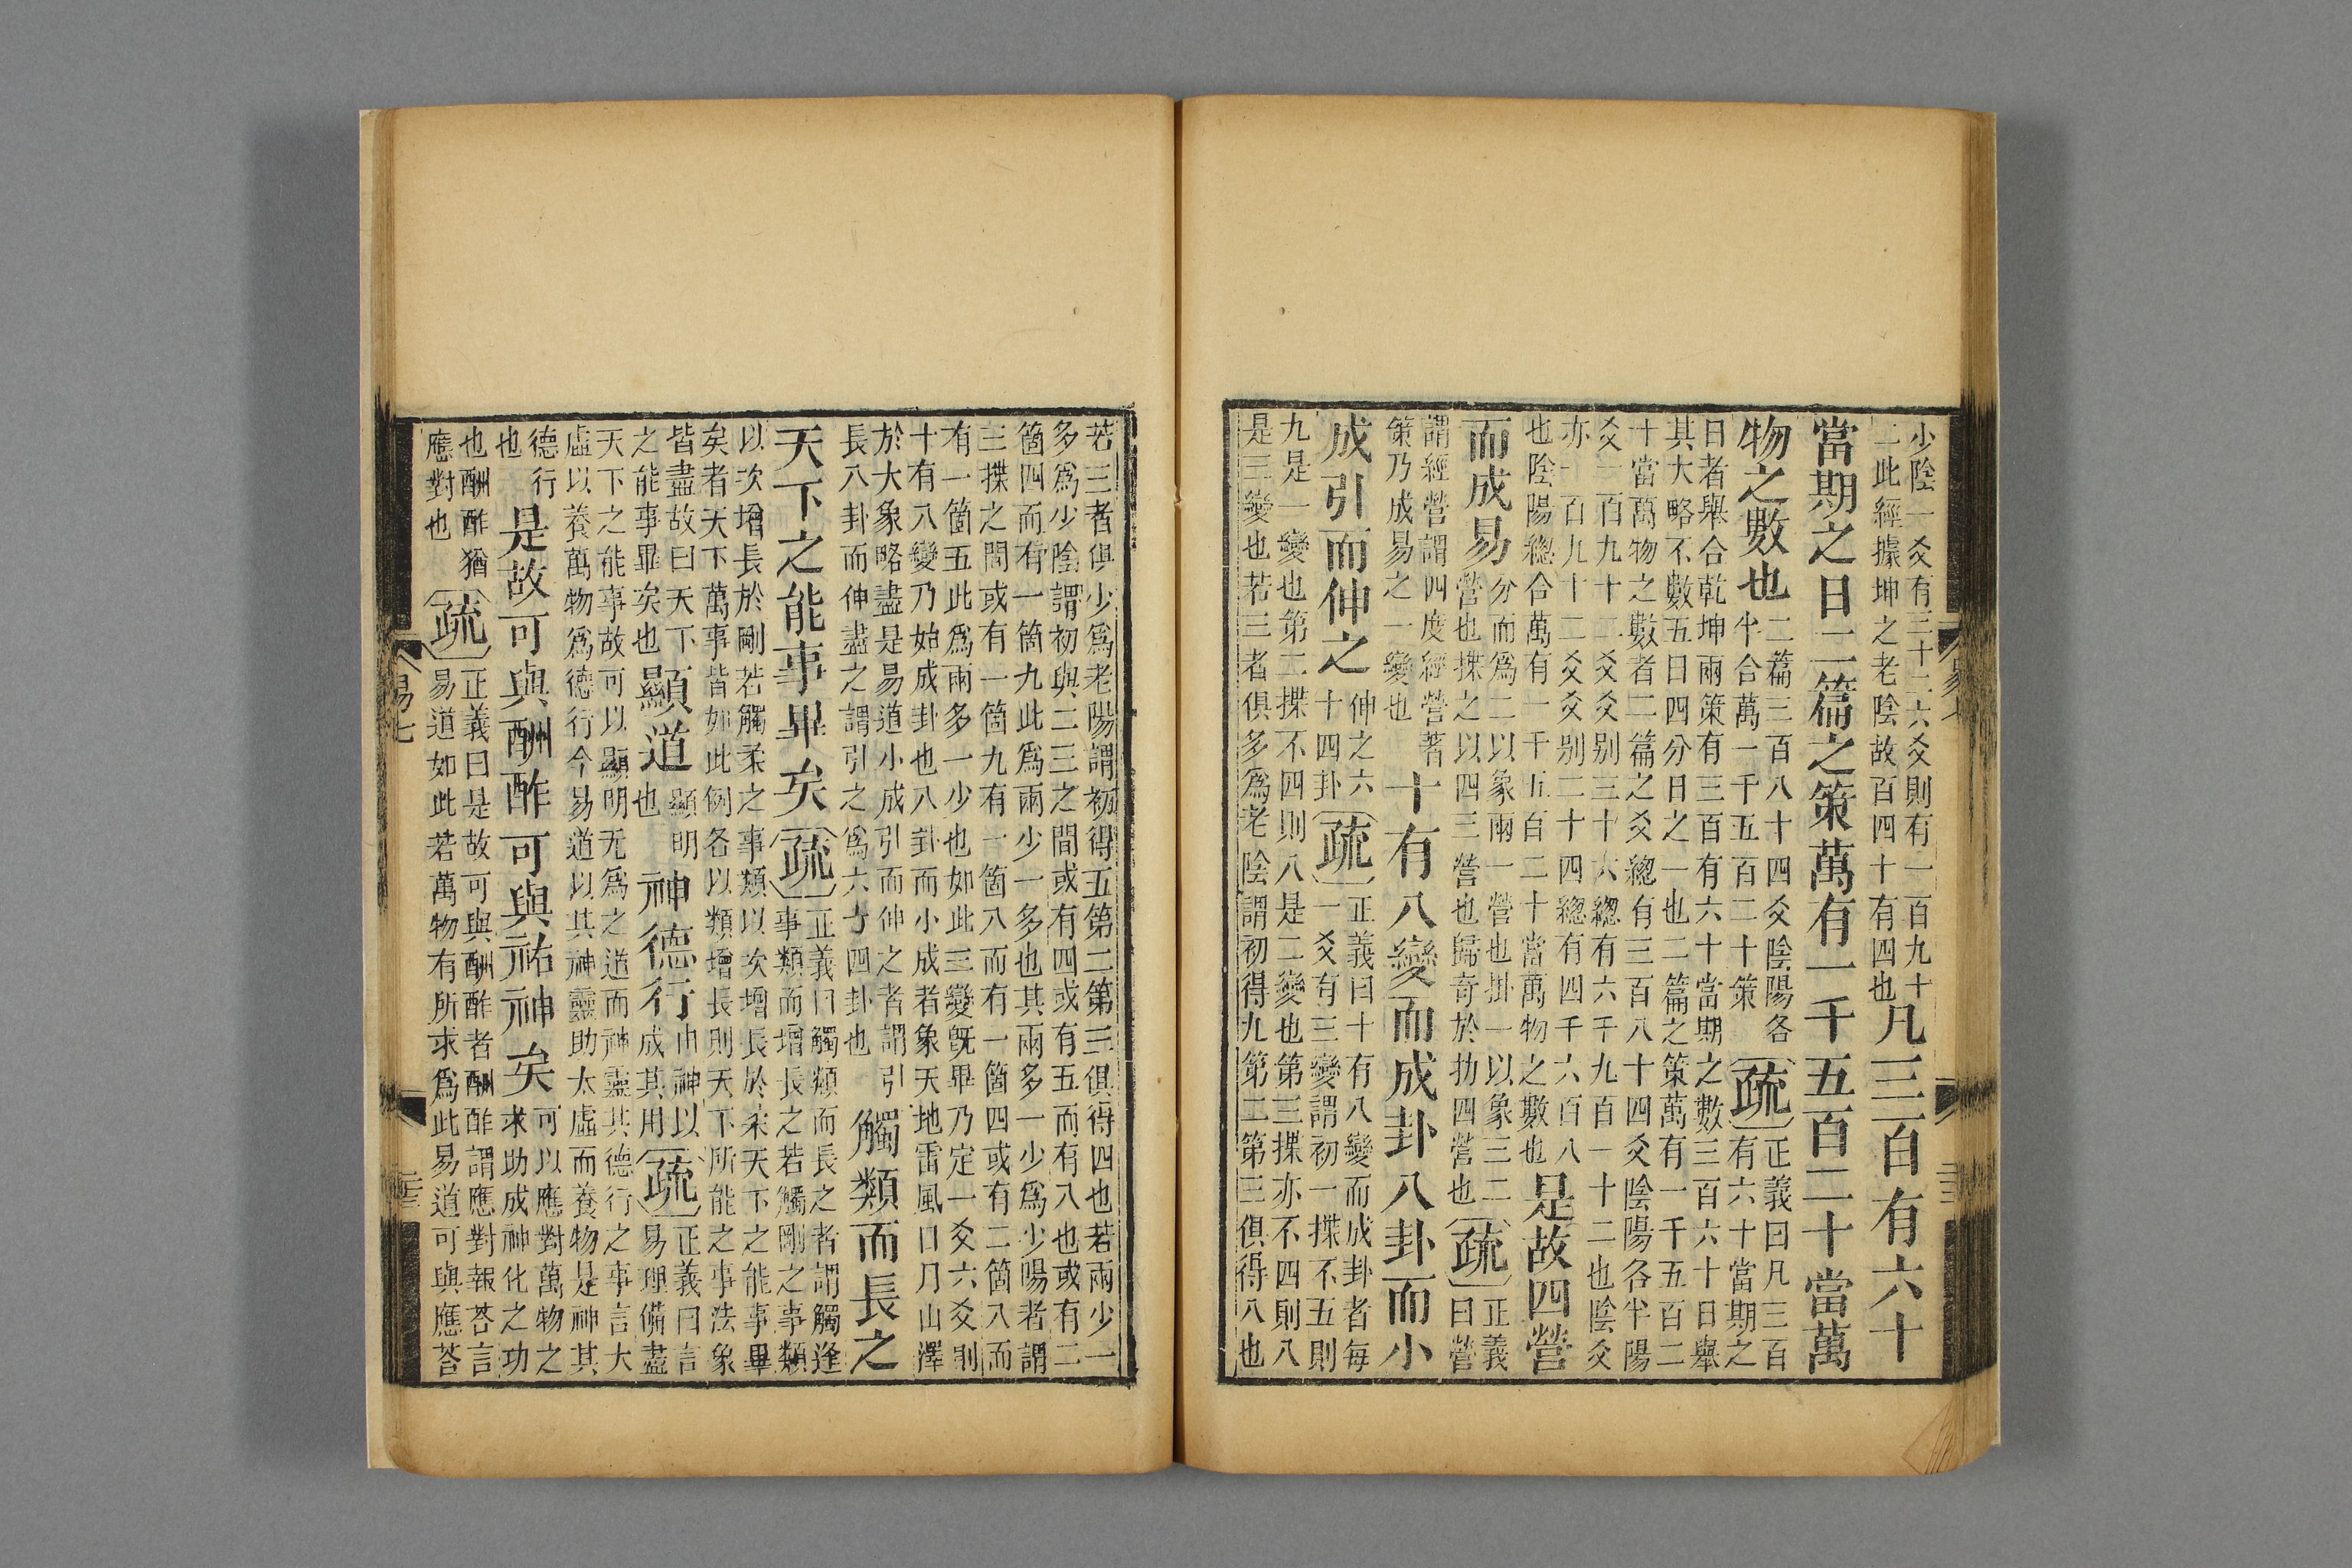 少陰一爻有三十二六爻則有一百九十
二此經據坤之老陰故百四十有四也
凡三百有六十
當期之日二篇之策萬有一千五百二十當萬
物之數也
二篇三百八十四爻陰陽各
半合萬一千五百二十策
疏
正義曰凡三百
有六十當期之
日者舉合乾坤兩策有三百有六十當期之數三百六十日舉
其大略不數五日四分日之一也二篇之策萬有一千五百二
十當萬物之數者二篇之爻總有三百八十四爻陰陽各半陽
爻一百九十二爻爻別三十六總有六千九百一十二也陰爻
亦一百九十二爻爻別二十四總有四千六百八
也陰陽總合萬有一千五百二十當萬物之數也
是故四營
而成易
分而爲二以象兩一營也掛一以象三二
營也揲之以四三營也歸奇於扐四營也
疏
正義
曰營
謂經營謂四度經營蓍
策乃成易之一變也
十有八變而成卦八卦而小
成引而伸之
伸之六
十四卦
疏
正義曰十有八變而成卦者每
一爻有三變謂初一揲不五則
九是一變也第二揲不四則八是二變也第三揲亦不四則八
是三變也若三者俱多爲老陰謂初得九第二第三俱得八也
易七
若三者俱少爲老陽謂初得五第二第三俱得四也若兩少一
多爲少陰謂初與二三之間或有四或有五而有八也或有二
箇四而有一箇九此爲兩少一多也其兩多一少爲少陽者謂
三揲之間或有一箇九有一箇八而有一箇四或有二箇八而
有一箇五此爲兩多一少也如此三變既畢乃定一爻六爻則
十有八變乃始成卦也八卦而小成者象天地雷風日月山澤
於大象略盡是易道小成引而伸之者謂引
長八卦而伸盡之謂引之爲六十四卦也
觸類而長之
天下之能事畢矣
疏
正義曰觸類而長之者謂觸逢
事類而增長之若觸剛之事類
以次增長於剛若觸柔之事類以次增長於柔天下之能事畢
矣者天下萬事皆如此例各以類增長則天下所能之事法象
皆盡故曰天下
之能事畢矣也
顯道
顯明
也
神德行
由神以
成其用
疏
正義曰言
易理備盡
天下之能事故可以顯明无爲之道而神靈其德行之事言大
虛以養萬物爲德行今易道以其神靈助太虛而養物是神其
德行
也
是故可與酬酢可與祐神矣
可以應對萬物之
求助成神化之功
也酬酢猶
應對也
疏
正義曰是故可與酬酢者酬酢謂應對報荅言
易道如此若萬物有所求爲此易道可與應荅
易七